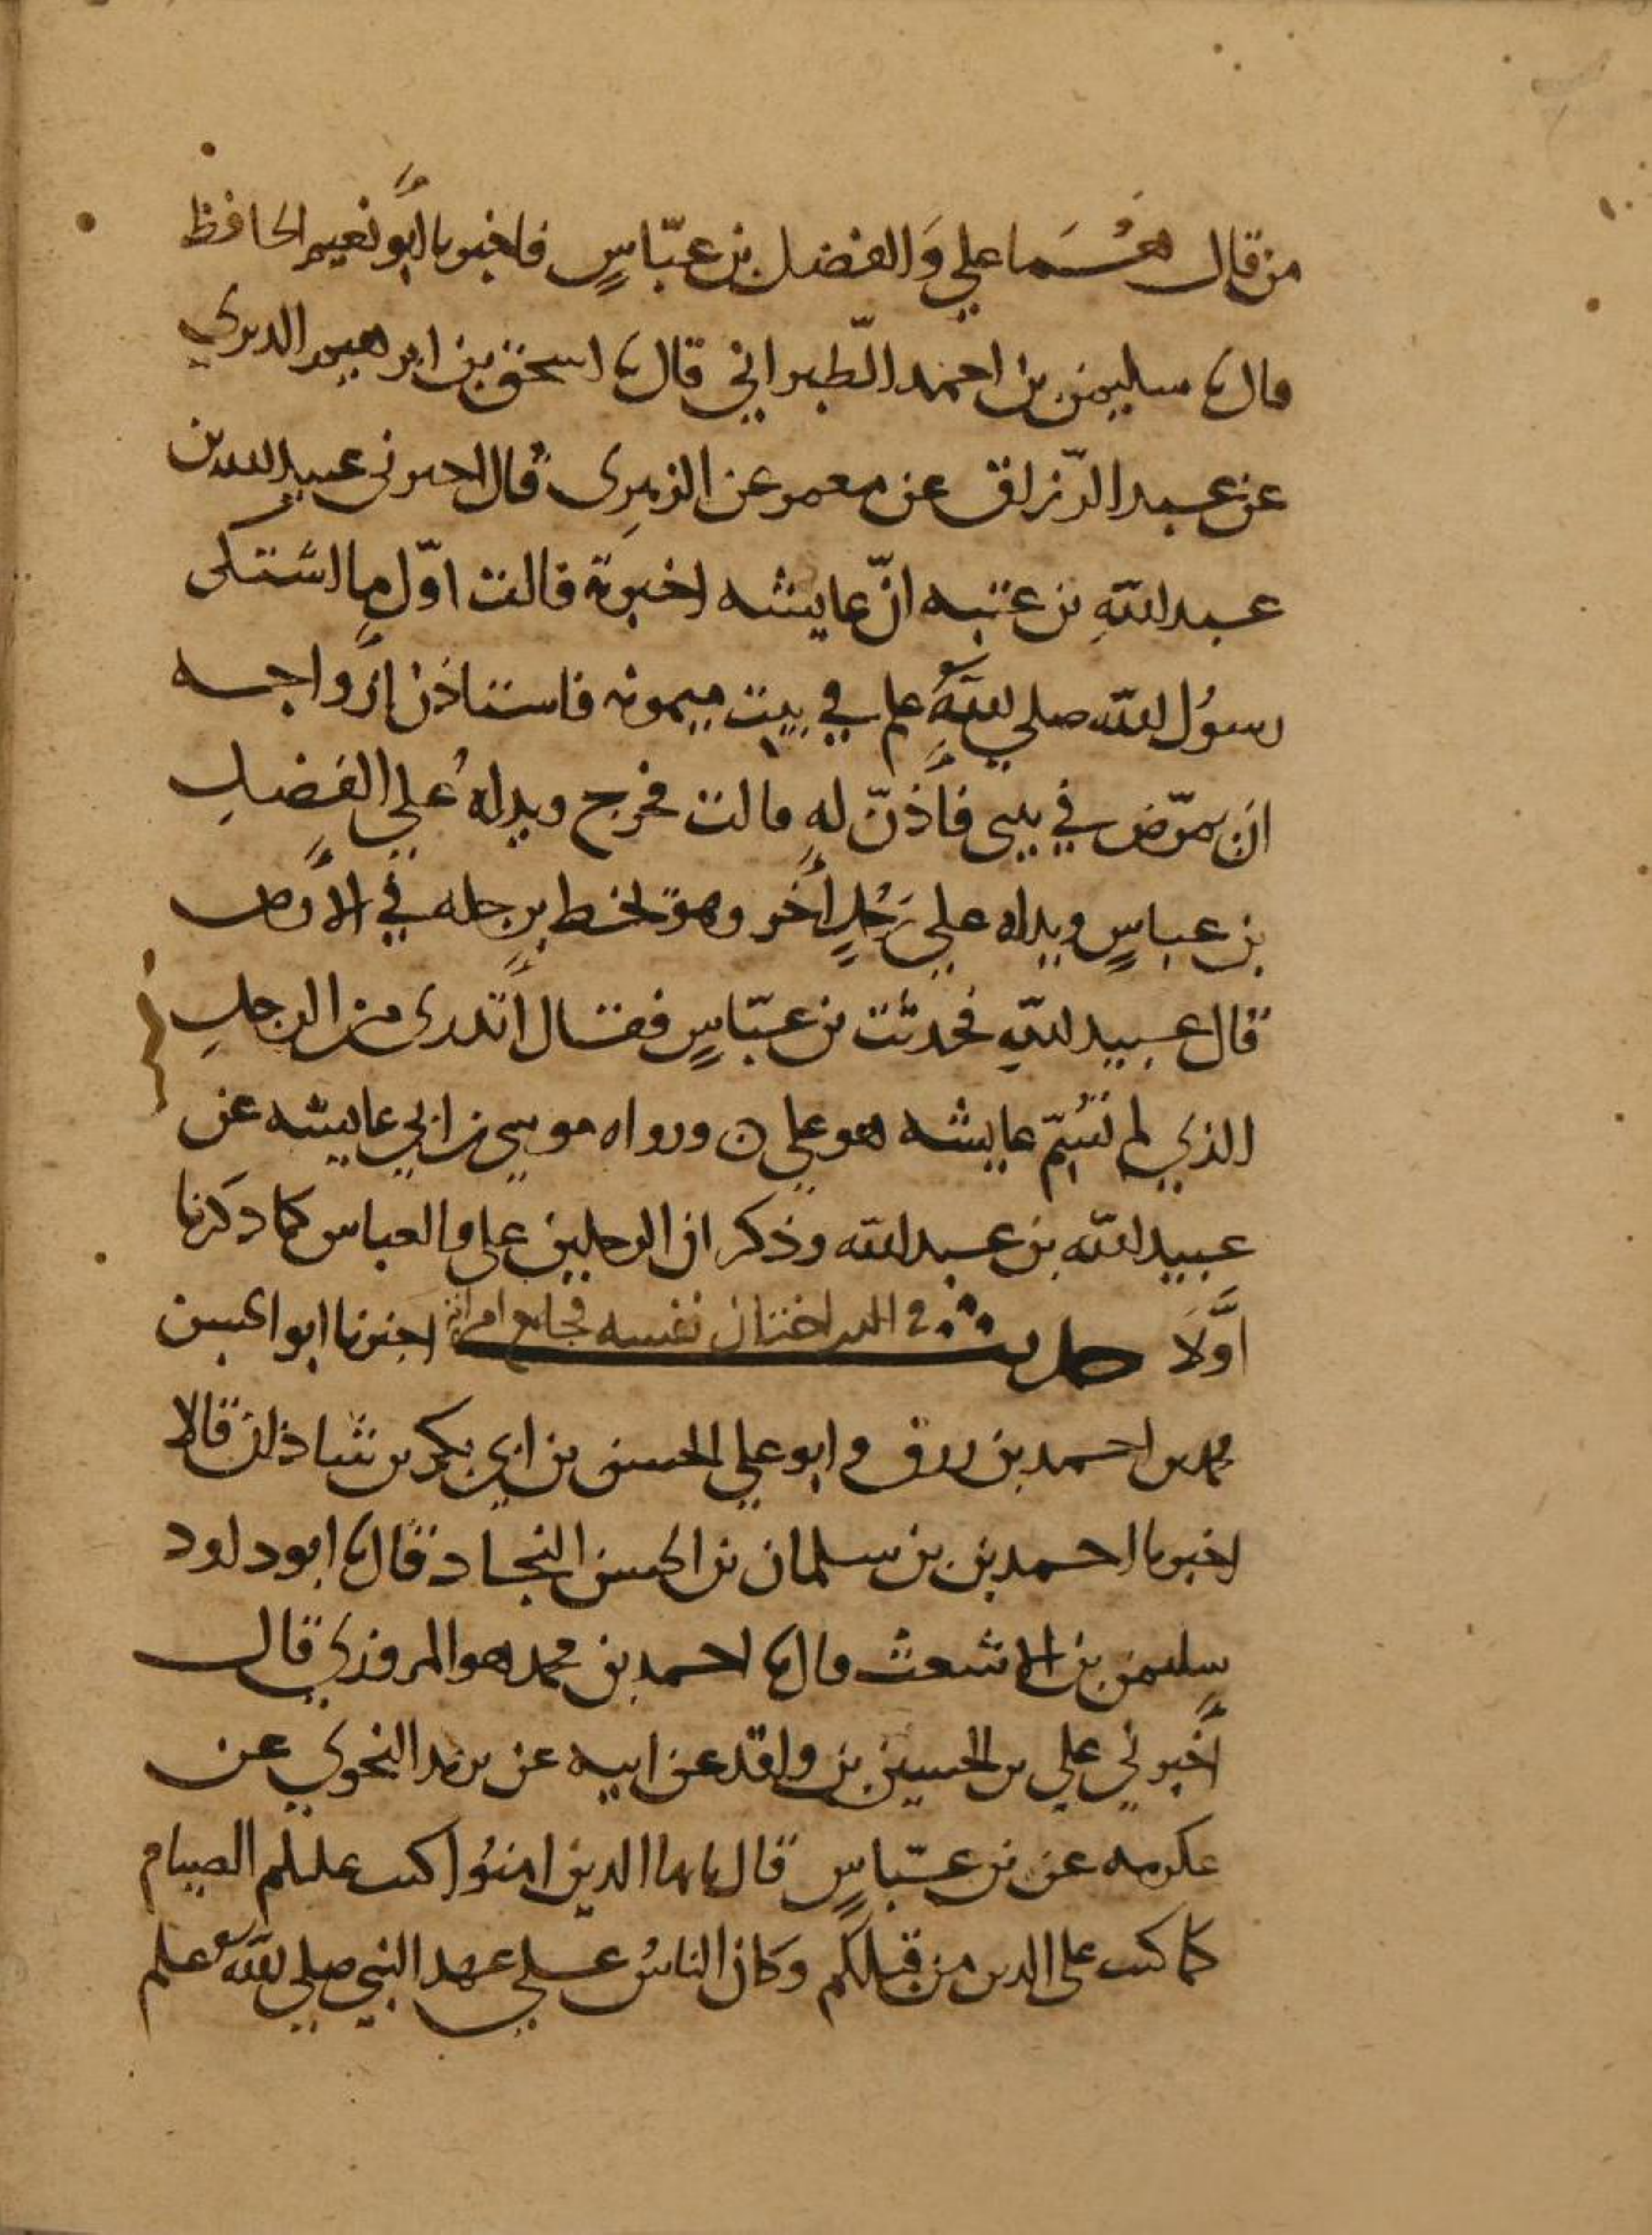 من قال هُمَا علي وَالفضل بن عبّاسٍ فاخبرنا أبو نعيم الحافظ
قال نا سليمن بن احمد الطبراني قال نا اسحق بن ابرهيم الدبري
عن عبد الرّزاق عن معمر عن الزهرِى قال اخبرنى عبيد الله بن
عبد اللهِ بن عتبه انّ عايشه اخبرته قالت اوّل ما اشتكى
رسوُل الله صلي اللهُ علم في بيت ميمونه فاستاذن أزواجه
ان يمرّض في بيتى فأذنّ له قالت فخرج ويد له علي الفضلِ
بن عباسٍ ويد له علي رَجُلٍ أخر وهو يخط برجله في الأرض
قال عبيد اللهِ فحدثت بن عبّاسٍ فقال أتدرى من الرجلِ
الذي لم تُسَمِّ عايشه هو علي ن ورواه موسي بن ابي عايشه عن
عبيد الله بن عبد الله وذكر ان الرجلين علي والعباس كما ذكرنا
اوَّلاَ حديث في الذي اختان نفسه فجامع امراته اخبرنا ابو الحسن
محمد بن احمد بن رزق وابو علي الحسن بن ابي بكر بن شاذان قالا
اخبرنا احمد بن بن سلمان بن الحسن النجاد قال نا ابو داود
سليمن بن الاشعث قال نا احمد بن محمد هو المروزي قال
أخبرني علي بن الحسين بن واقد عن ابيه عن يزيد النحوي عن
عكرمه عن بن عبّاسٍ قال يايها الذين امنوُا كتب عليكم الصيام
كما كتب على الذين من قبلكم وكان الناسُ علي عهد النبي صلي الله علم